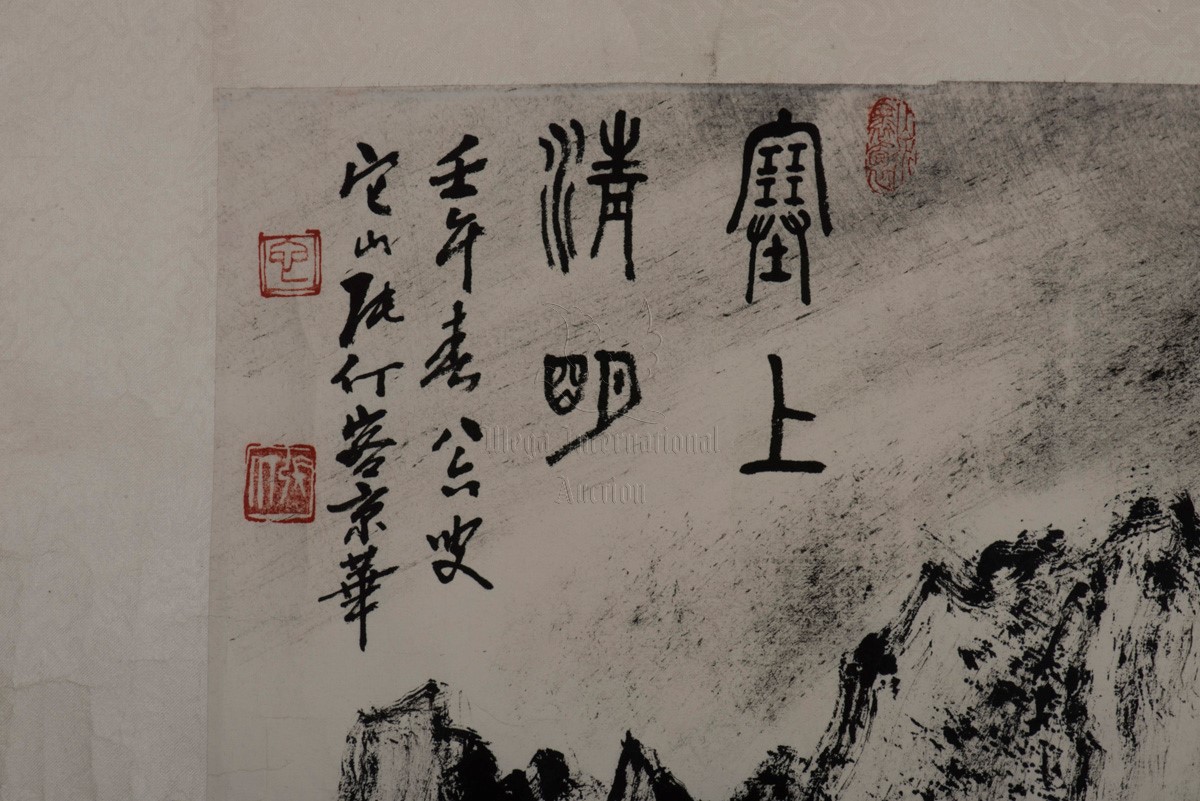 塞上
清明
壬午春八六叟
它山張仃客京華
它
張仃
Mega International
Auction